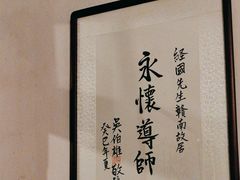 經國先生贛南故居
永懷導師
吳伯雄敬題
癸巳年夏